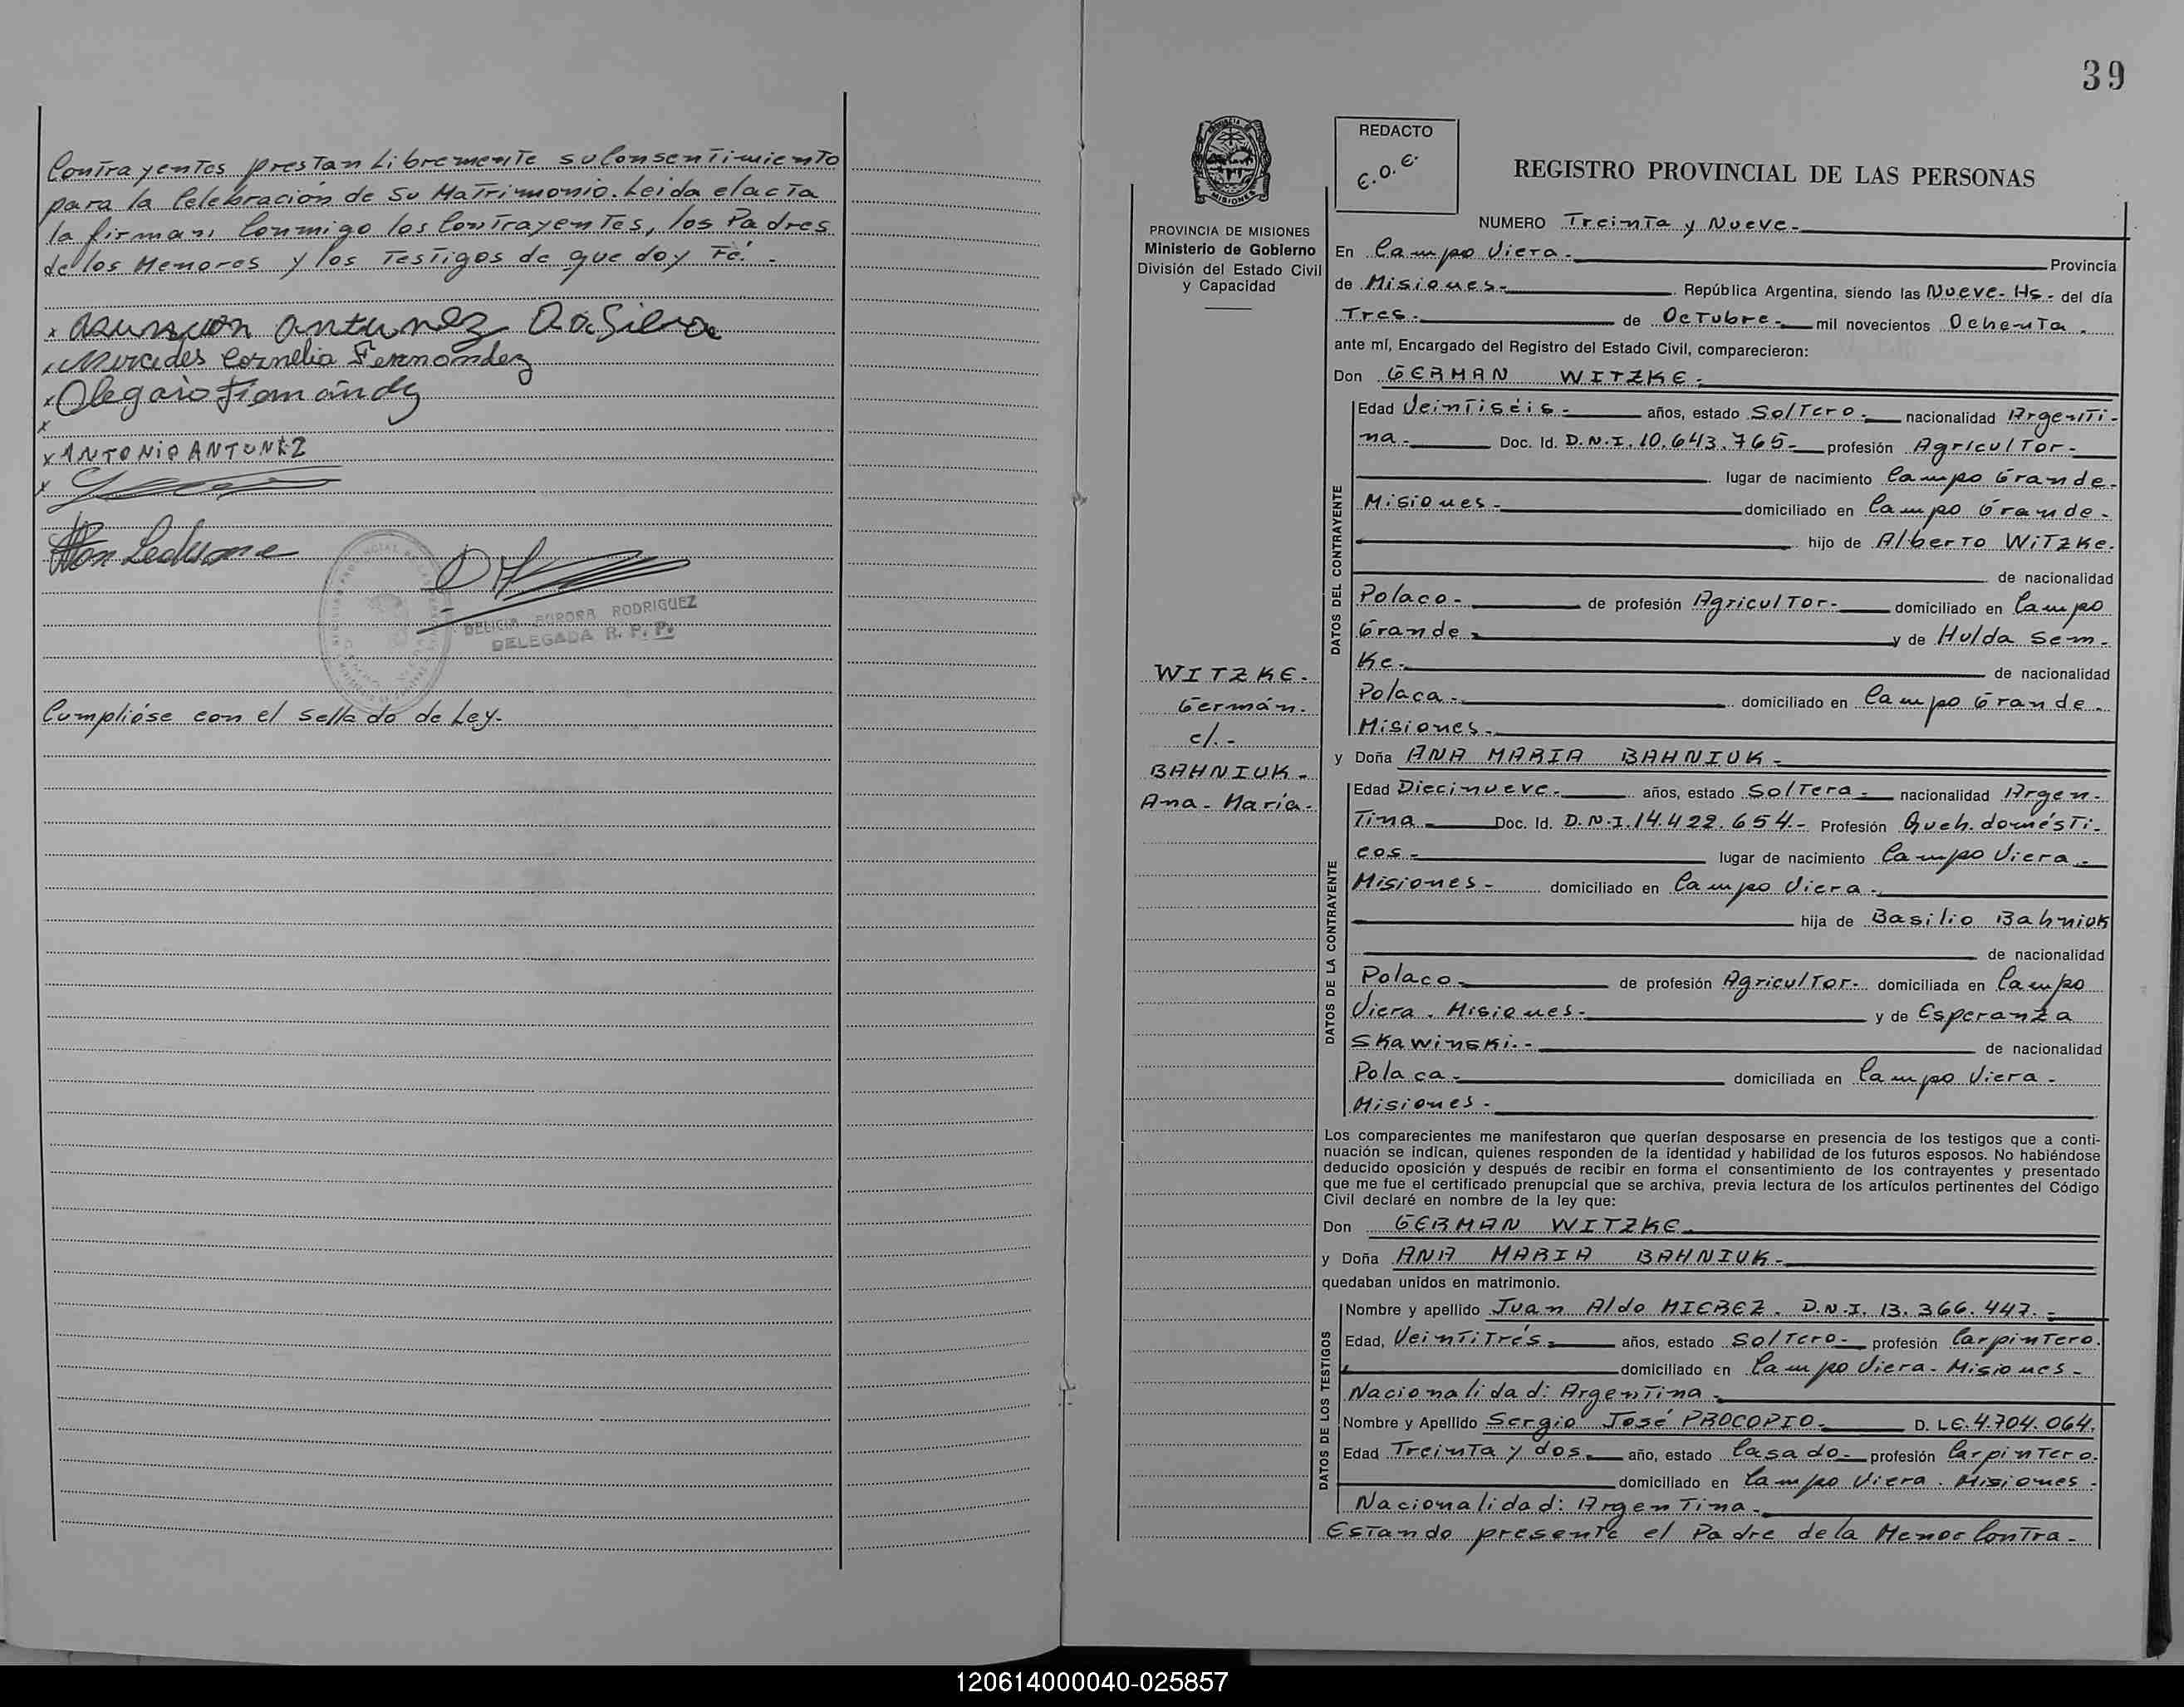 Contrayentes prestan Libremente su Consentimiento
para la Celebración de Su Matrimonio. Leida el acta
la firman Conmigo los Contrayentes, los Padres
de los Menores y los Testigos de que doy Fé. -
x Asuncion Antunez Da Silva
x Mercedes Cornelia Fernández
x Olegario
x
x ANTONIO ANTUNEZ
x
DELICIA AURORA RODRIGUEZ
DELEGADA R. P. P.
Cumplióse con el Sellado de Ley.
39
PROVINCIA DE MISIONES
Ministerio de Gobierno
División del Estado Civil
y Capacidad
WITZKE.
Germán.
c/.-
BAHNIUK-
Ana-María-
REDACTO
E.O.E.
REGISTRO PROVINCIAL DE LAS PERSONAS
NUMERO Treinta y Nueve-
En Campo Viera- Provincia
de Misiones- República Argentina, siendo las Nueve-Hs- del día
Tres- de Octubre- mil novecientos Ochenta.
ante mí, Encargado del Registro del Estado Civil, comparecieron:
Don GERMAN WITZKE-
DATOS DEL CONTRAYENTE
Edad Veintiséis- años, estado Soltero- nacionalidad Argenti-
na- Doc. Id. D.N.I. 10.643.765- profesión Agricultor-
lugar de nacimiento Campo Grande-
Misiones- domiciliado en Campo Grande-
hijo de Alberto Witzke.
de nacionalidad
Polaco- de profesión Agricultor- domiciliado en Campo
Grande- y de Hulda Sem-
Ke- de nacionalidad
Polaca- domiciliado en Campo Grande-
Misiones-
y Doña ANA MARIA BAHNIUK-
DATOS DE LA CONTRAYENTE
Edad Diecinueve- años, estado Soltera- nacionalidad Argen-
Tina- Doc. Id. D.N.I. 14.422.654- Profesión Queh. domésti-
cos- lugar de nacimiento Campo Viera-
Misiones- domiciliado en Campo Viera-
hija de Basilio Bahniuk
de nacionalidad
Polaco- de profesión Agricultor- domiciliada en Campo
Viera. Misiones- y de Esperanza
Skawinski.- de nacionalidad
Polaca- domiciliada en Campo Viera-
Misiones-
Los comparecientes me manifestaron que querían desposarse en presencia de los testigos que a conti-
nuación se indican, quienes responden de la identidad y habilidad de los futuros esposos. No habiéndose
deducido oposición y después de recibir en forma el consentimiento de los contrayentes y presentado
que me fue el certificado prenupcial que se archiva, previa lectura de los artículos pertinentes del Código
Civil declaré en nombre de la ley que:
Don GERMAN WITZKE-
y Doña ANA MARIA BAHNIUK-
quedaban unidos en matrimonio.
DATOS DE LOS TESTIGOS
Nombre y apellido Juan Aldo MIEREZ. D.N.I. 13.366.447.-
Edad, Veintitrés- años, estado Soltero- profesión Carpintero.
domiciliado en Campo Viera-Misiones-
Nacionalidad: Argentina-
Nombre y Apellido Sergio José PROCOPIO- D. LE. 4.704.064.
Edad Treinta y dos- año, estado Casado- profesión Carpintero.
domiciliado en Campo Viera. Misiones-
Nacionalidad: Argentina-
Estando presente el Padre de la Menor Contra-
120614000040-025857